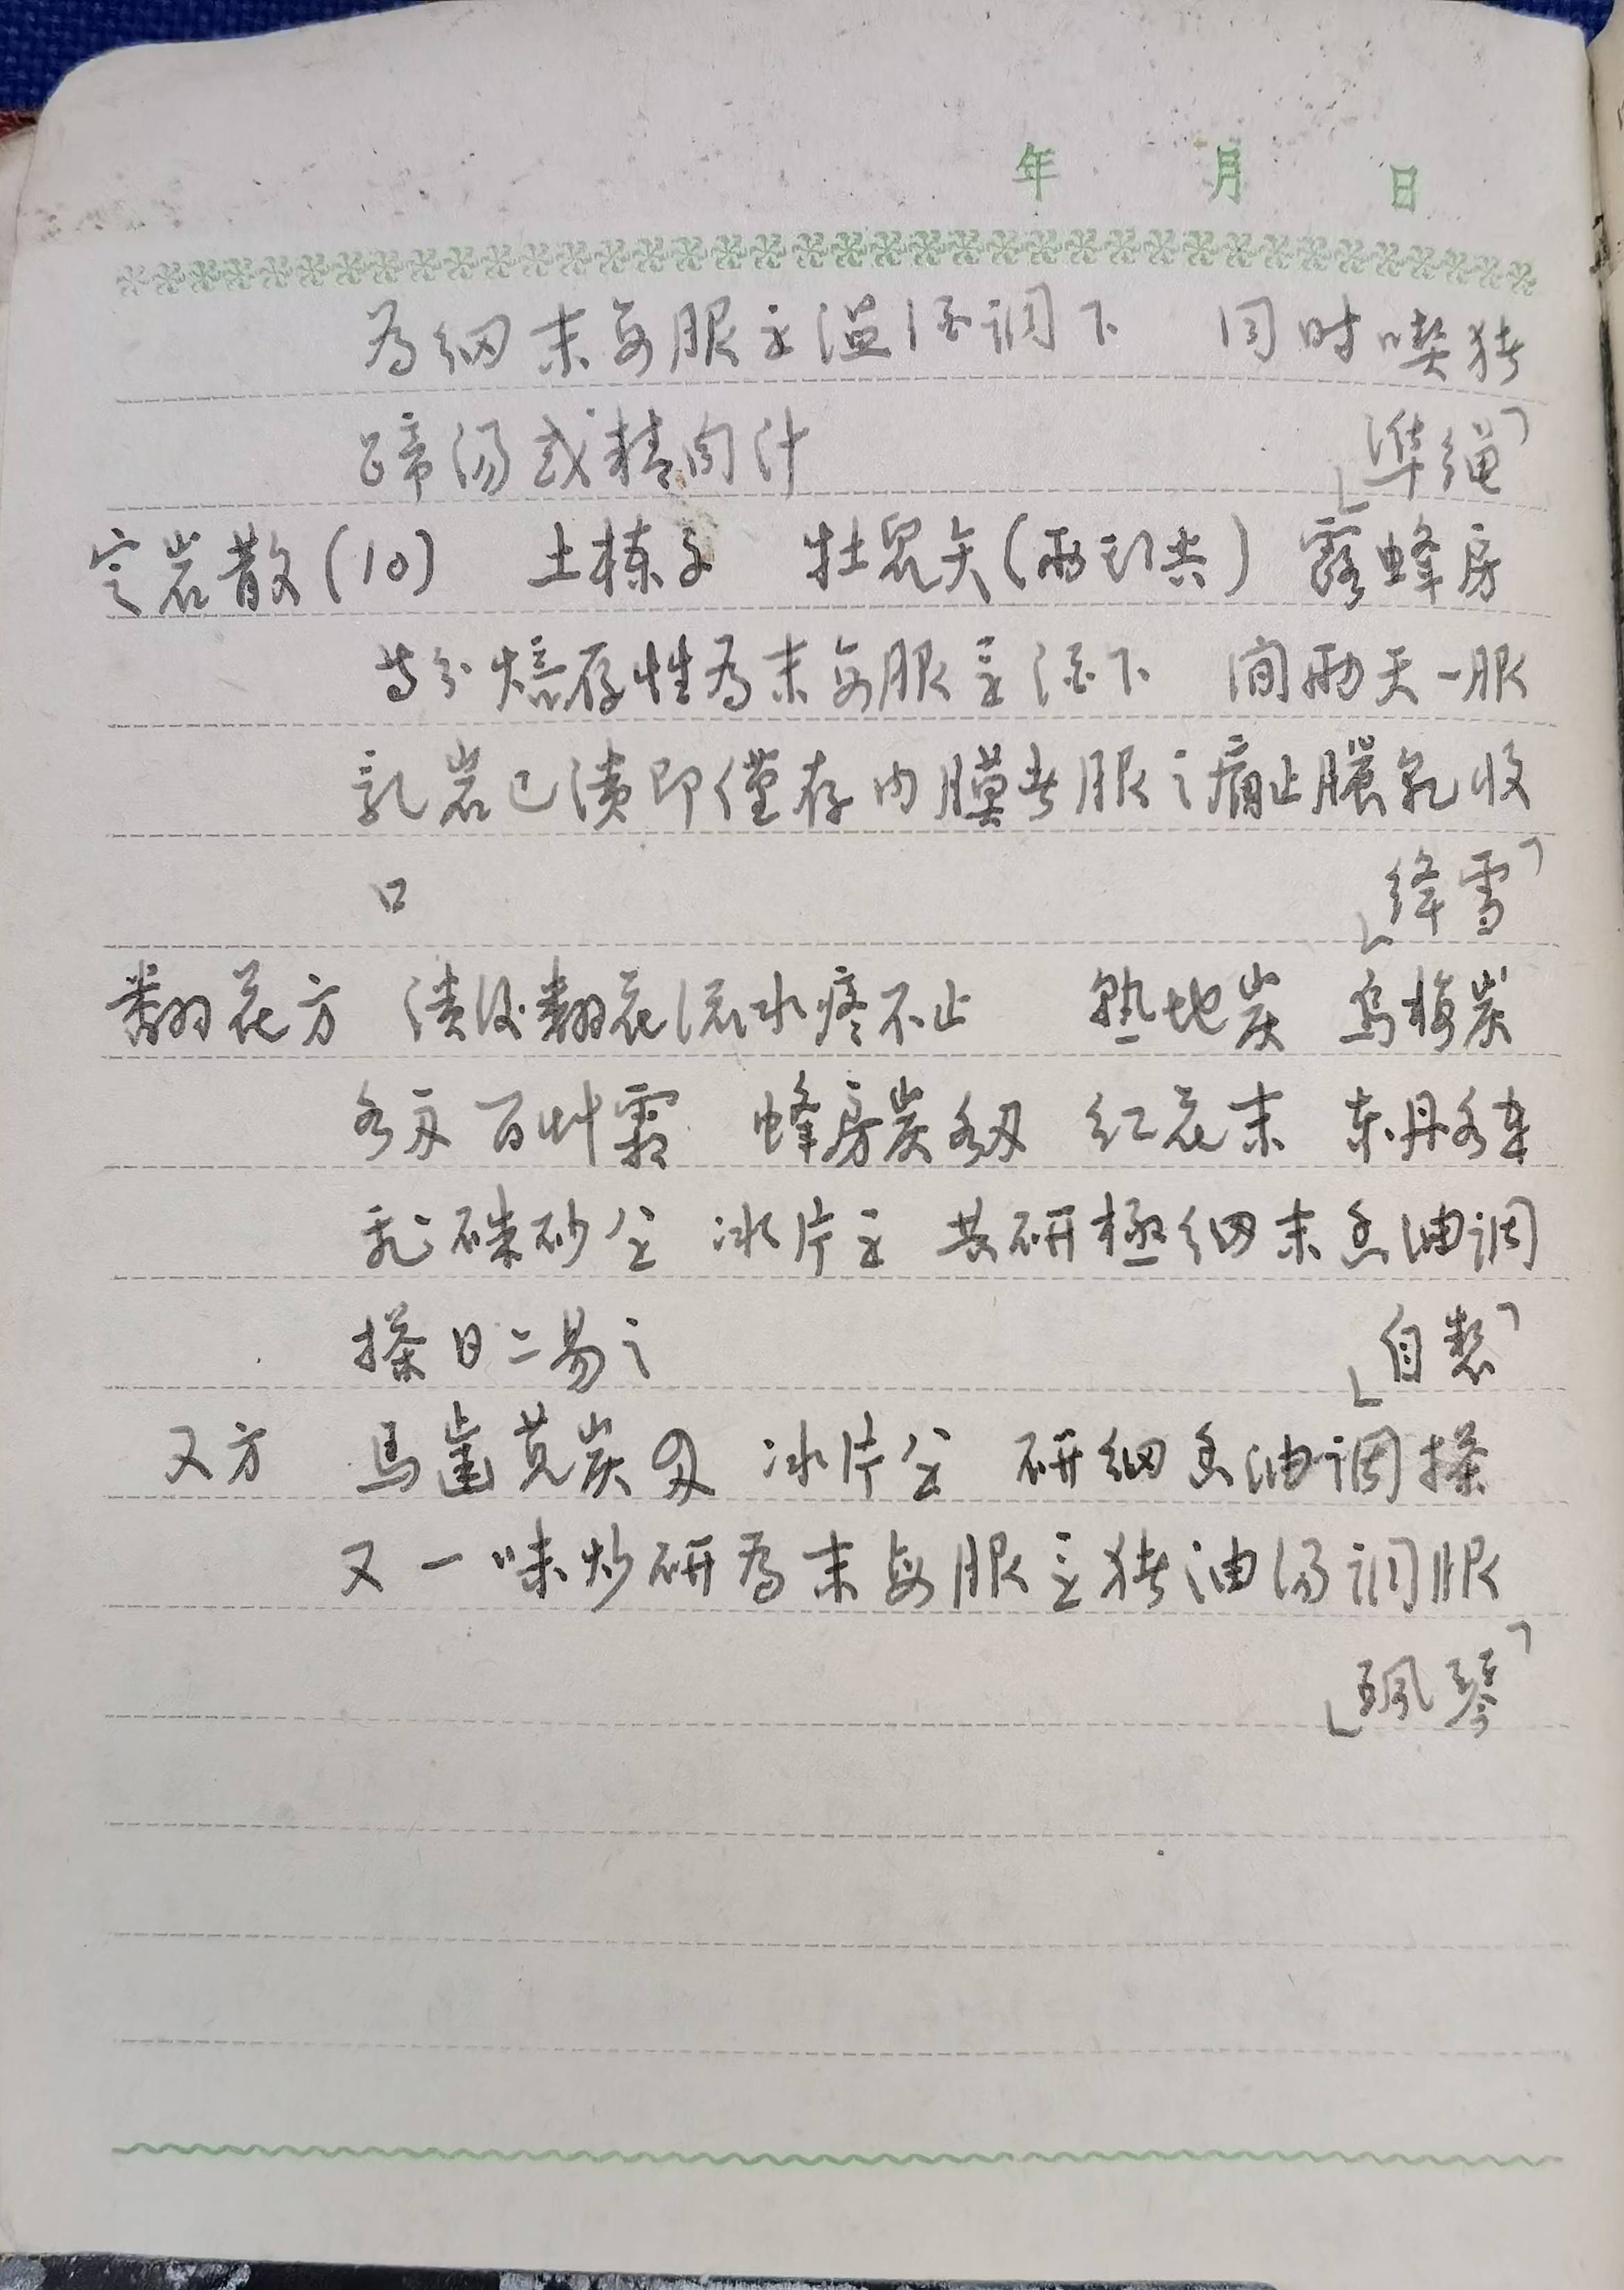 年 月 日
为细末每服 温酒调下 同时喫猪
蹄汤或精肉汁 「准绳」
定岩散(10) 土楝子 牡鼠矢(两头尖) 露蜂房
等分煅存性为末每服 酒下 间两天一服
乳岩已溃即仅存内膜者服之痛止脓干收
口 「绛雪」
翻花方 溃后翻花流水疼不止 熟地炭 乌梅炭
各 百艸霜 蜂房炭 红花末 东丹各
硃砂 冰片 共研極细末香油调
搽日二易之 「自製」
又方 馬齒莧炭 冰片 研细香油调搽
又一味炒研为末每服 猪油汤调服
「珮琴」